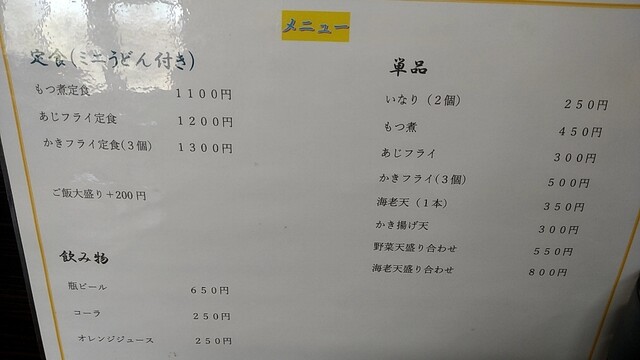 メニュー
定食(ミニうどん付き)
もつ煮定食 1100円
あじフライ定食 1200円
かきフライ定食(3個) 1300円
ご飯大盛り+200円
飲み物
瓶ビール 650円
コーラ 250円
オレンジジュース 250円
単品
いなり(2個) 250円
もつ煮 450円
あじフライ 300円
かきフライ(3個) 500円
海老天(1本) 350円
かき揚げ天 300円
野菜天盛り合わせ 550円
海老天盛り合わせ 800円